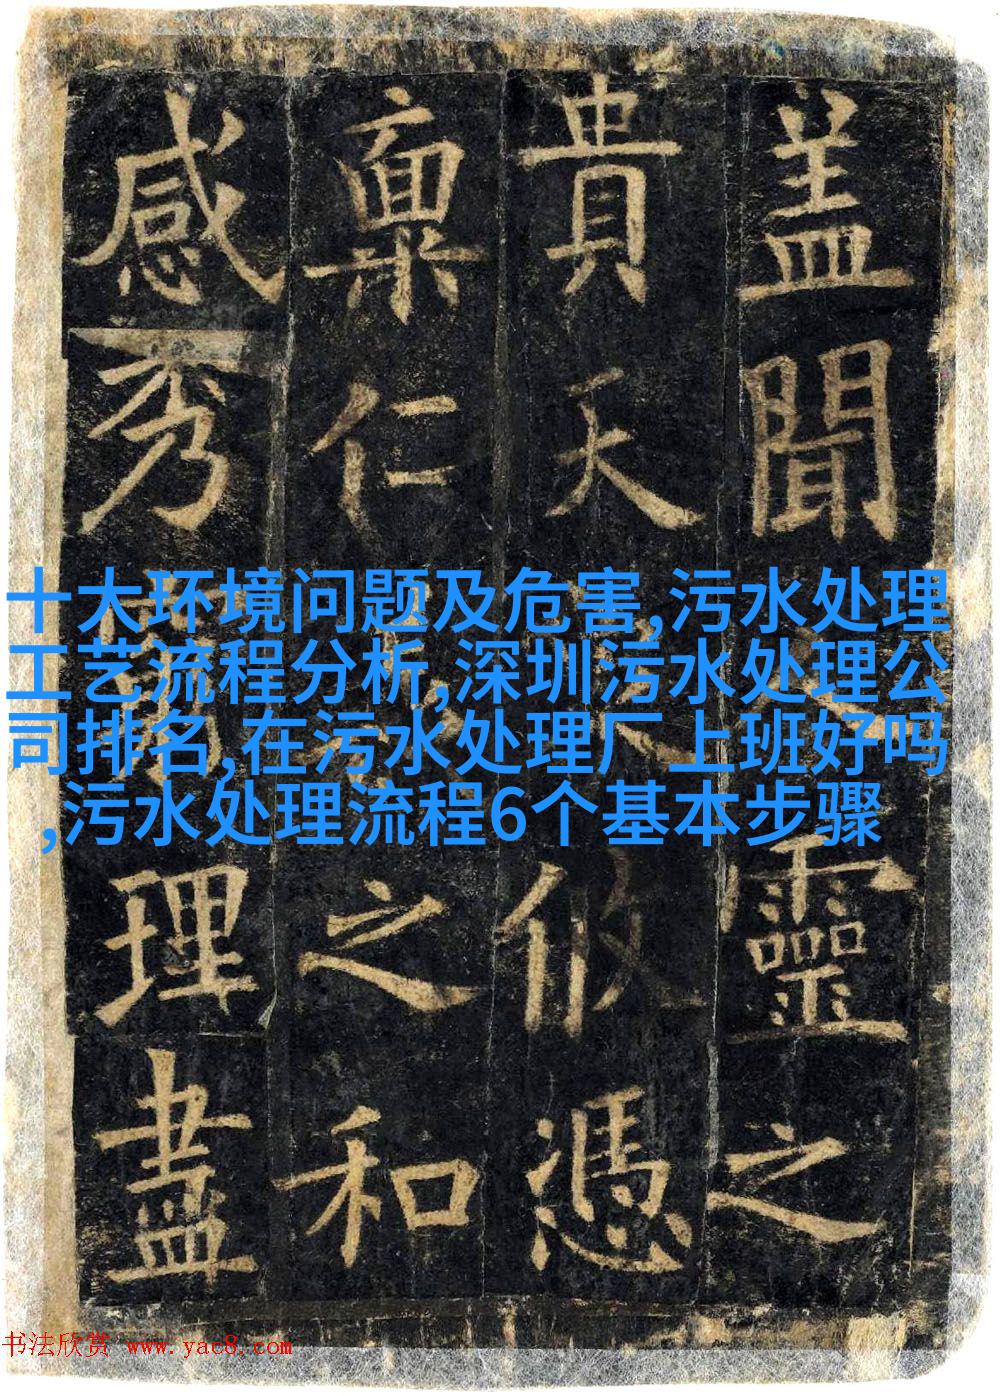 盖聞靈之
貴天攸憑
稟仁之和
感秀理盡
十大环境问题及危害,污水处理
工艺流程分析,深圳污水处理公
司排名,在污水处理厂上班好吗
,污水处理流程6个基本步骤
书法欣赏 www.yac8.com